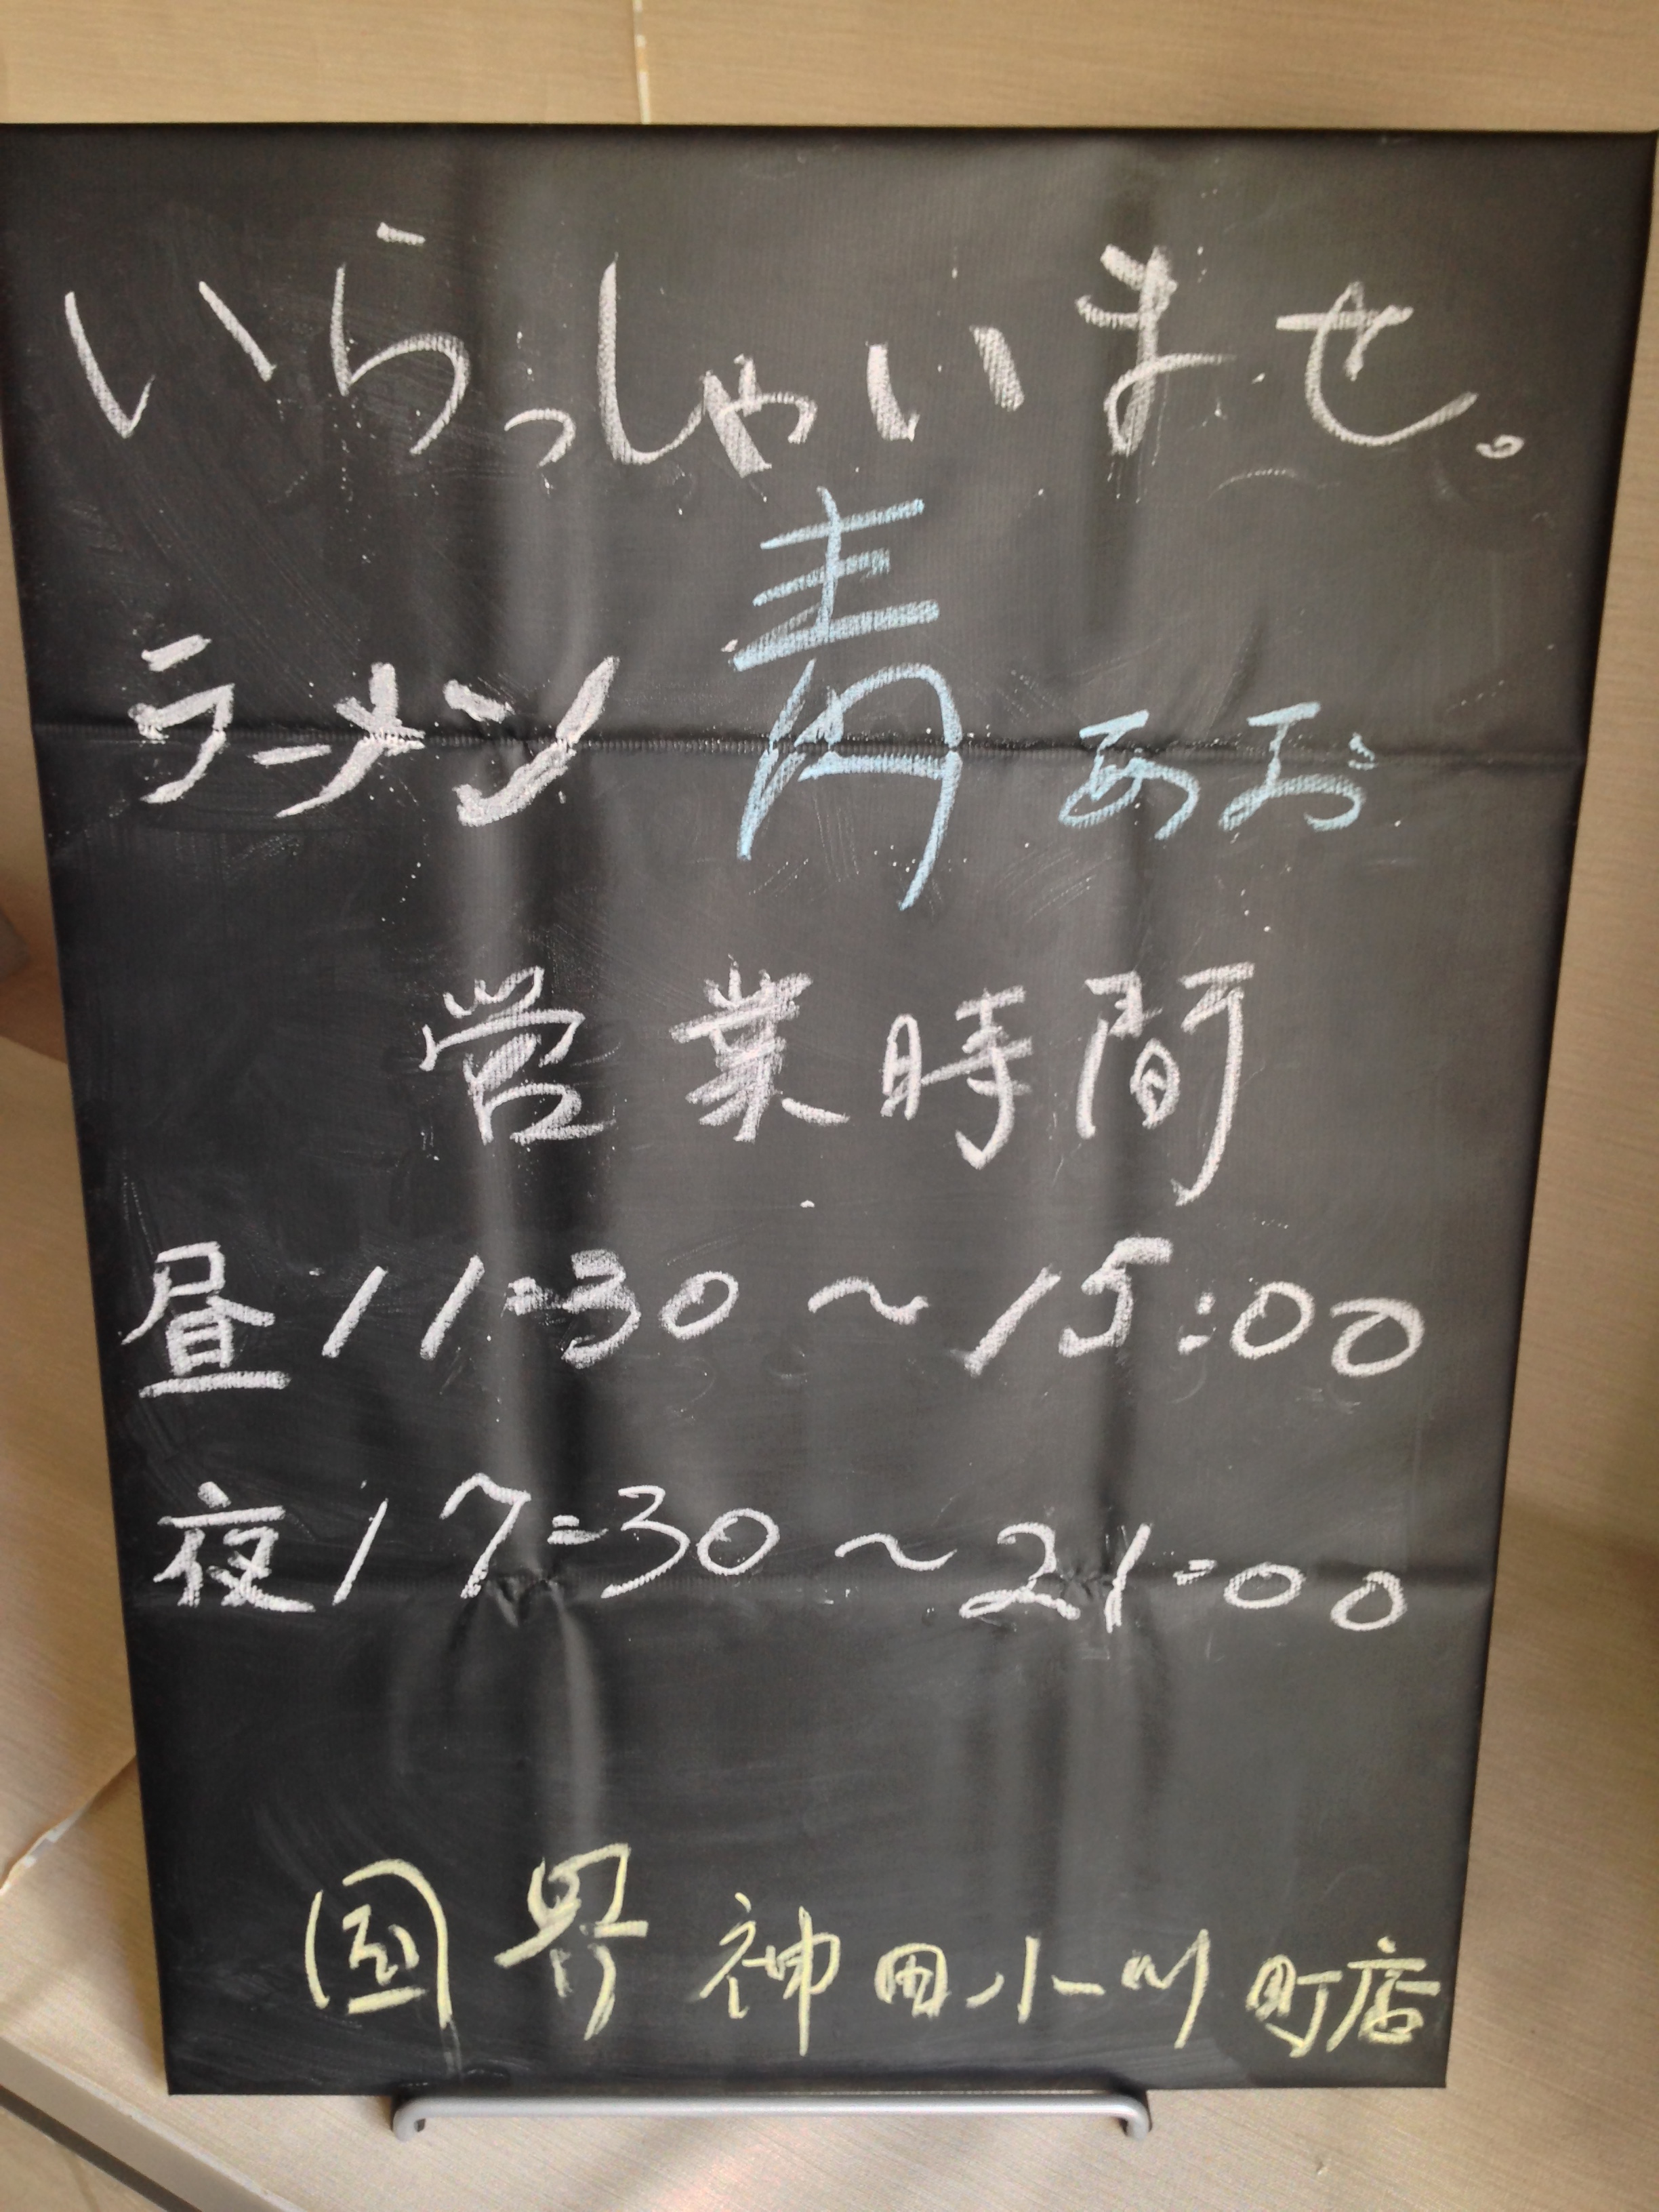 いらっしゃいませ。
ラーメン 青 あお
営業時間
昼 11:30 〜 15:00
夜 17:30 〜 21:00
国界 神田小川町店